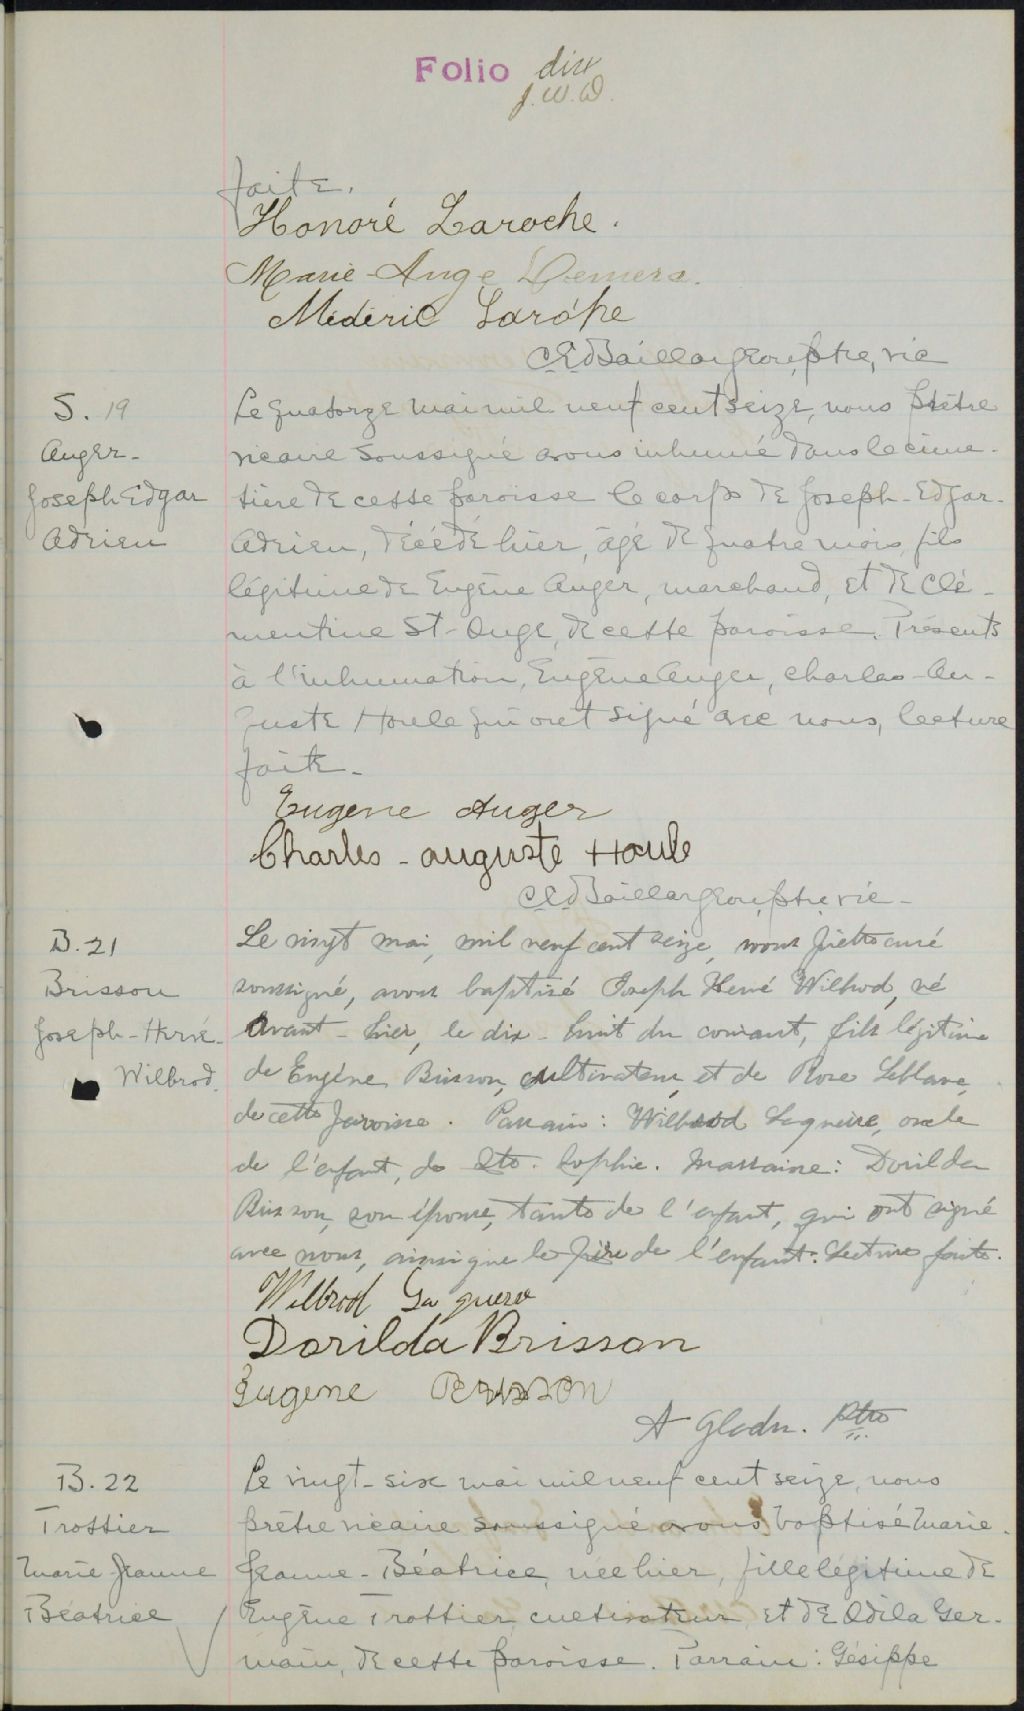 Folio dix
J.W.D.
faite.
Honoré Laroche.
Marie-Ange Demers.
Médéric Laroche
C.E. Baillargeon, ptre, vic
S. 19
Auger-
Joseph Edgar
Adrien
Le quatorze mai mil neuf cent seize, nous prêtre
vicaire soussigné avons inhumé dans le cime-
tière de cette paroisse le corps de Joseph-Edgar-
Adrien, décédé hier, âgé de quatre mois, fils
légitime de Eugène Auger, marchand, et de Clé-
mentine St-Onge, de cette paroisse. Présents
à l'inhumation, Eugène Auger, Charles-Au-
guste Houle qui ont signé avec nous, lecture
faite-
Eugene Auger
Charles-auguste Houle
C.E. Baillargeon, ptre, vic-
B. 21
Brisson
Joseph-Hervé-
Wilbrod.
Le vingt mai, mil neuf cent seize, nous prêtre curé
soussigné, avons baptisé Joseph Hervé Wilbrod, né
avant-hier, le dix-huit du courant, fils légitime
de Eugène Brisson, cultivateur, et de Rose Leblanc,
de cette paroisse. Parrain: Wilbrod Laguerre, oncle
de l'enfant, de Ste. Sophie. Marraine: Dorilda
Brisson, son épouse, tante de l'enfant, qui ont signé
avec nous, ainsi que le père de l'enfant. Lecture faite.
Wilbrod
Dorilda Brisson
Eugene Brisson
A Ptre
B. 22
Trottier
Marie-Jeanne
Béatrice
Le vingt-six mai mil neuf cent seize, nous
prêtre vicaire soussigné avons baptisé Marie-
Jeanne-Béatrice, née hier, fille légitime de
Eugène Trottier, cultivateur, et de Odila Ger-
main, de cette paroisse. Parrain: Gésippe